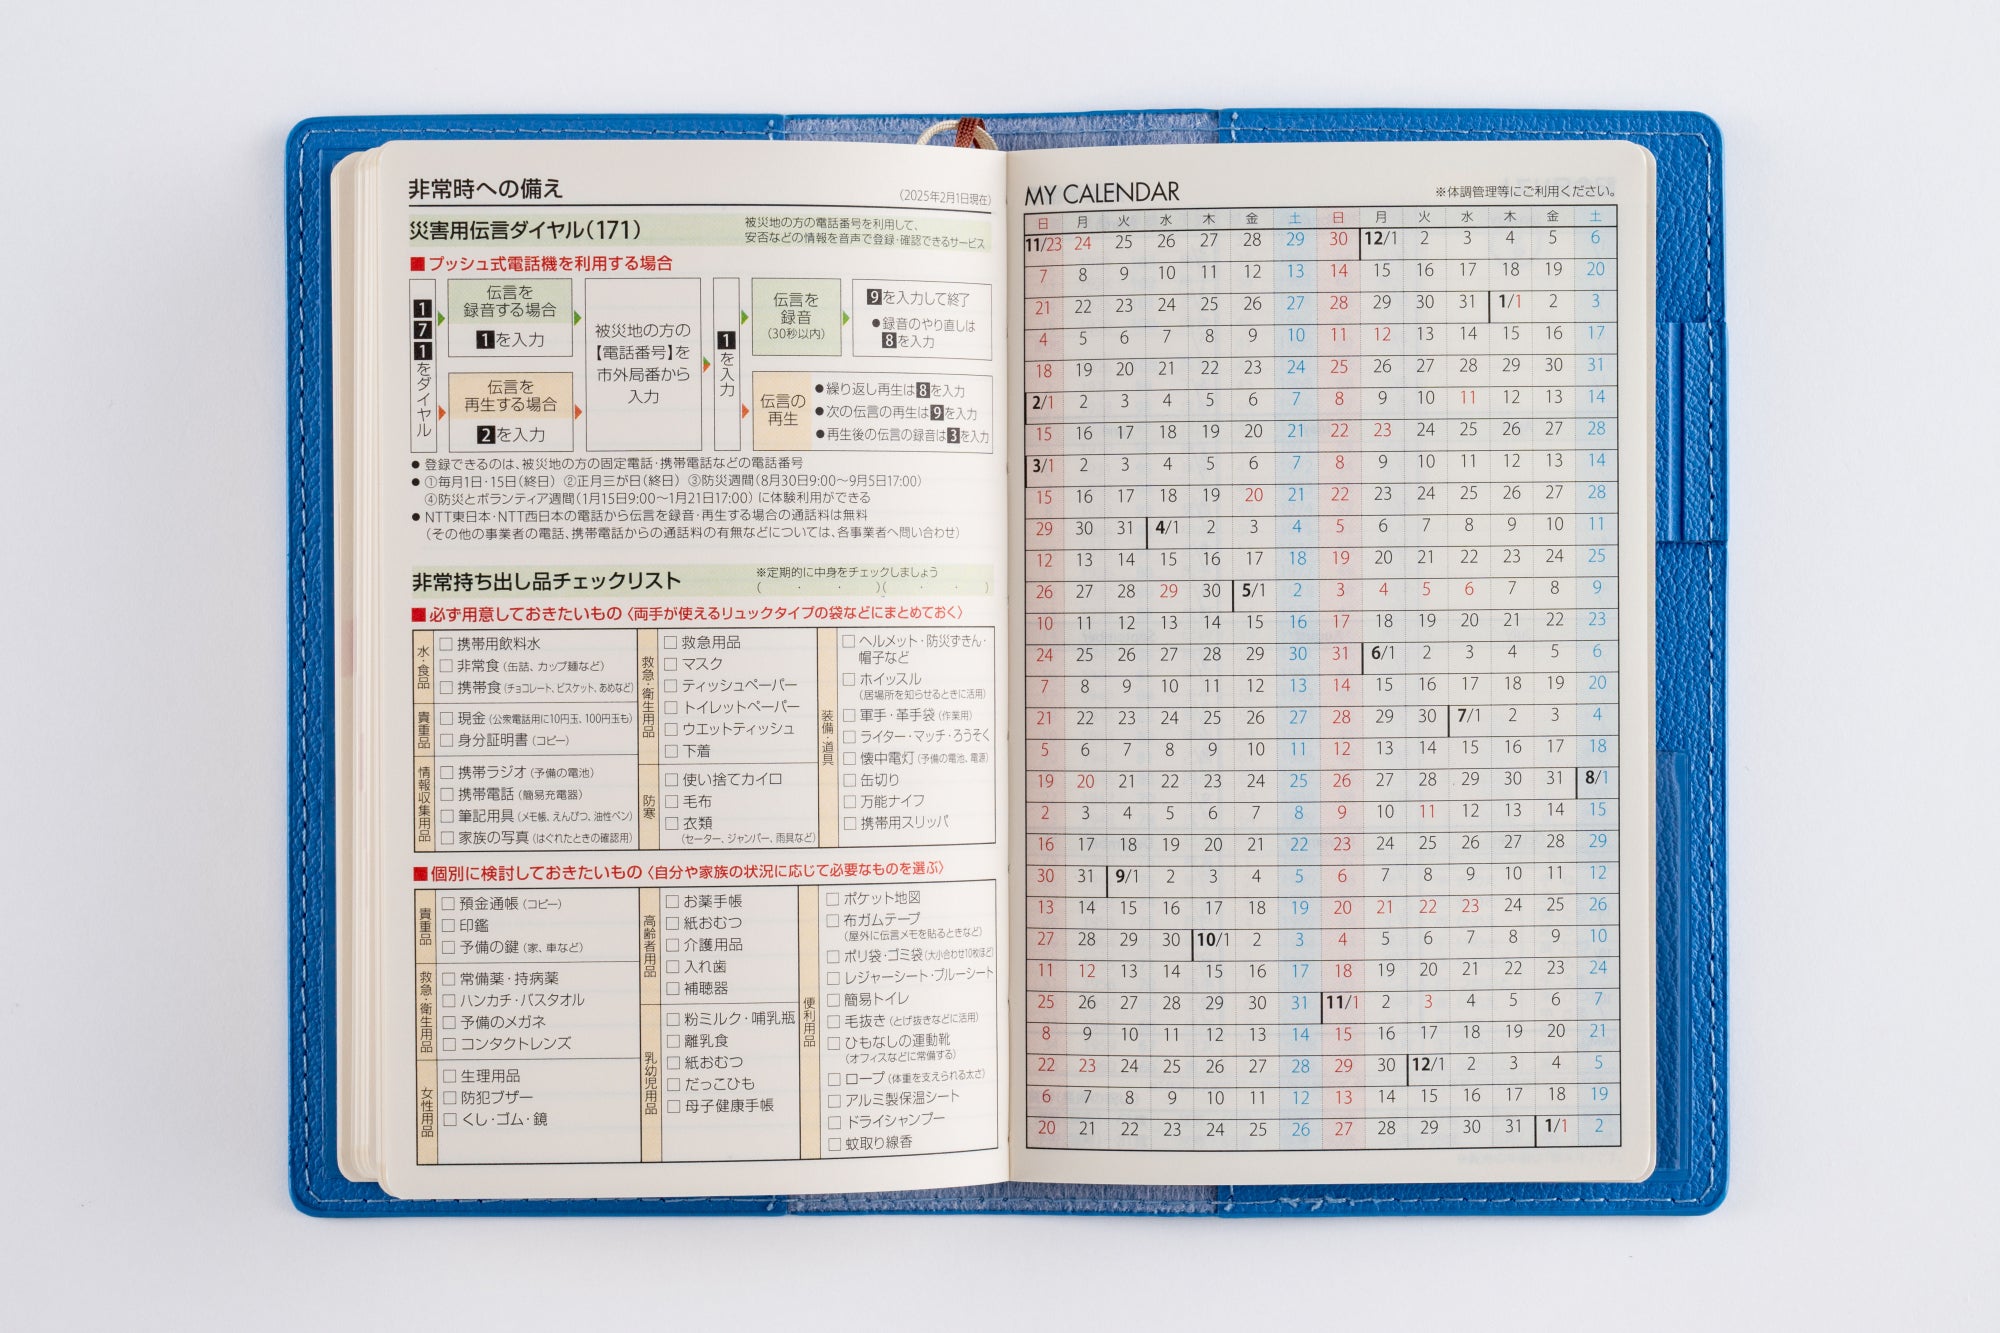 非常時への備え
(2025年2月1日現在)
災害用伝言ダイヤル(171)
被災地の方の電話番号を利用して、
安否などの情報を音声で登録・確認できるサービス
■プッシュ式電話機を利用する場合
171をダイヤル
伝言を
録音する場合
1を入力
伝言を
再生する場合
2を入力
被災地の方の
【電話番号】を
市外局番から
入力
1を入力
伝言を
録音
(30秒以内)
9を入力して終了
●録音のやり直しは
8を入力
伝言の
再生
●繰り返し再生は8を入力
●次の伝言の再生は9を入力
●再生後の伝言の録音は3を入力
● 登録できるのは、被災地の方の固定電話・携帯電話などの電話番号
● ①毎月1日・15日(終日) ②正月三が日(終日) ③防災週間(8月30日9:00〜9月5日17:00)
④防災とボランティア週間(1月15日9:00〜1月21日17:00) に体験利用ができる
● NTT東日本・NTT西日本の電話から伝言を録音・再生する場合の通話料は無料
(その他の事業者の電話、携帯電話からの通話料の有無などについては、各事業者へ問い合わせ)
非常持ち出し品チェックリスト
※定期的に中身をチェックしましょう
( ・ ・ )( ・ ・ )
■必ず用意しておきたいもの〈両手が使えるリュックタイプの袋などにまとめておく〉
水・食品
□ 携帯用飲料水
□ 非常食(缶詰、カップ麺など)
□ 携帯食(チョコレート、ビスケット、あめなど)
貴重品
□ 現金(公衆電話用に10円玉、100円玉も)
□ 身分証明書(コピー)
情報収集用品
□ 携帯ラジオ(予備の電池)
□ 携帯電話(簡易充電器)
□ 筆記用具(メモ帳、えんぴつ、油性ペン)
□ 家族の写真(はぐれたときの確認用)
救急・衛生用品
□ 救急用品
□ マスク
□ ティッシュペーパー
□ トイレットペーパー
□ ウエットティッシュ
□ 下着
防寒
□ 使い捨てカイロ
□ 毛布
□ 衣類
(セーター、ジャンパー、雨具など)
装備・道具
□ ヘルメット・防災ずきん・
帽子など
□ ホイッスル
(居場所を知らせるときに活用)
□ 軍手・革手袋(作業用)
□ ライター・マッチ・ろうそく
□ 懐中電灯(予備の電池、電源)
□ 缶切り
□ 万能ナイフ
□ 携帯用スリッパ
■個別に検討しておきたいもの〈自分や家族の状況に応じて必要なものを選ぶ〉
貴重品
□ 預金通帳(コピー)
□ 印鑑
□ 予備の鍵(家、車など)
救急・衛生用品
□ 常備薬・持病薬
□ ハンカチ・バスタオル
□ 予備のメガネ
□ コンタクトレンズ
女性用品
□ 生理用品
□ 防犯ブザー
□ くし・ゴム・鏡
高齢者用品
□ お薬手帳
□ 紙おむつ
□ 介護用品
□ 入れ歯
□ 補聴器
乳幼児用品
□ 粉ミルク・哺乳瓶
□ 離乳食
□ 紙おむつ
□ だっこひも
□ 母子健康手帳
便利用品
□ ポケット地図
□ 布ガムテープ
(屋外に伝言メモを貼るときなど)
□ ポリ袋・ゴミ袋(大小合わせ10枚ほど)
□ レジャーシート・ブルーシート
□ 簡易トイレ
□ 毛抜き(とげ抜きなどに活用)
□ ひもなしの運動靴
(オフィスなどに常備する)
□ ロープ(体重を支えられる太さ)
□ アルミ製保温シート
□ ドライシャンプー
□ 蚊取り線香
MY CALENDAR
※体調管理等にご利用ください。
日 月 火 水 木 金 土 日 月 火 水 木 金 土
11/23 24 25 26 27 28 29 30 12/1 2 3 4 5 6
7 8 9 10 11 12 13 14 15 16 17 18 19 20
21 22 23 24 25 26 27 28 29 30 31 1/1 2 3
4 5 6 7 8 9 10 11 12 13 14 15 16 17
18 19 20 21 22 23 24 25 26 27 28 29 30 31
2/1 2 3 4 5 6 7 8 9 10 11 12 13 14
15 16 17 18 19 20 21 22 23 24 25 26 27 28
3/1 2 3 4 5 6 7 8 9 10 11 12 13 14
15 16 17 18 19 20 21 22 23 24 25 26 27 28
29 30 31 4/1 2 3 4 5 6 7 8 9 10 11
12 13 14 15 16 17 18 19 20 21 22 23 24 25
26 27 28 29 30 5/1 2 3 4 5 6 7 8 9
10 11 12 13 14 15 16 17 18 19 20 21 22 23
24 25 26 27 28 29 30 31 6/1 2 3 4 5 6
7 8 9 10 11 12 13 14 15 16 17 18 19 20
21 22 23 24 25 26 27 28 29 30 7/1 2 3 4
5 6 7 8 9 10 11 12 13 14 15 16 17 18
19 20 21 22 23 24 25 26 27 28 29 30 31 8/1
2 3 4 5 6 7 8 9 10 11 12 13 14 15
16 17 18 19 20 21 22 23 24 25 26 27 28 29
30 31 9/1 2 3 4 5 6 7 8 9 10 11 12
13 14 15 16 17 18 19 20 21 22 23 24 25 26
27 28 29 30 10/1 2 3 4 5 6 7 8 9 10
11 12 13 14 15 16 17 18 19 20 21 22 23 24
25 26 27 28 29 30 31 11/1 2 3 4 5 6 7
8 9 10 11 12 13 14 15 16 17 18 19 20 21
22 23 24 25 26 27 28 29 30 12/1 2 3 4 5
6 7 8 9 10 11 12 13 14 15 16 17 18 19
20 21 22 23 24 25 26 27 28 29 30 31 1/1 2